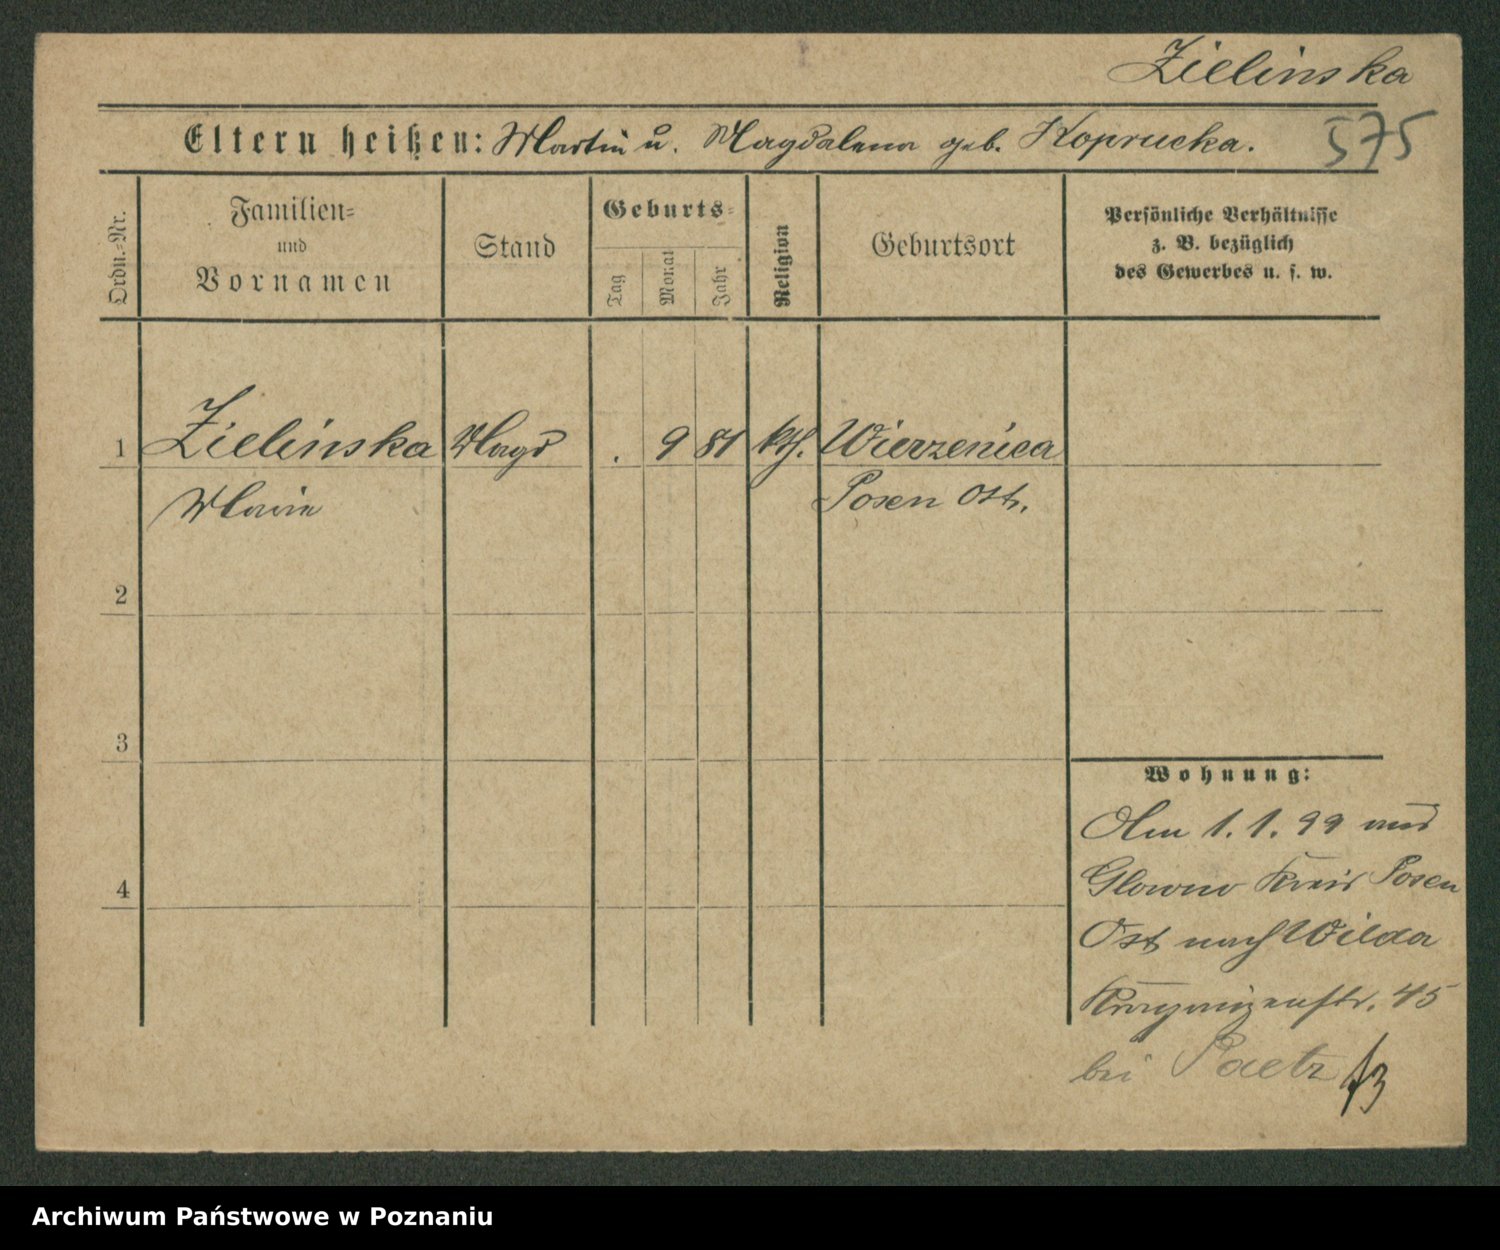 Zielinska
Eltern heißen: Martin u. Magdalena geb. Koprucka.
575
Ordn.=Nr.
Familien=
und
Vornamen
Stand
Geburts=
Tag
Monat
Jahr
Religion
Geburtsort
Persönliche Verhältnisse
z. B. bezüglich
des Gewerbes u. s. w.
1 Zielinska Magd . 9 81 kth. Wierzenica
Marie Posen Ost.
2
3
Wohnung:
Am 1.1.99 aus
Glowno Kreis Posen
4
Ost nach Wilda
45
bei Paetz
Archiwum Państwowe w Poznaniu